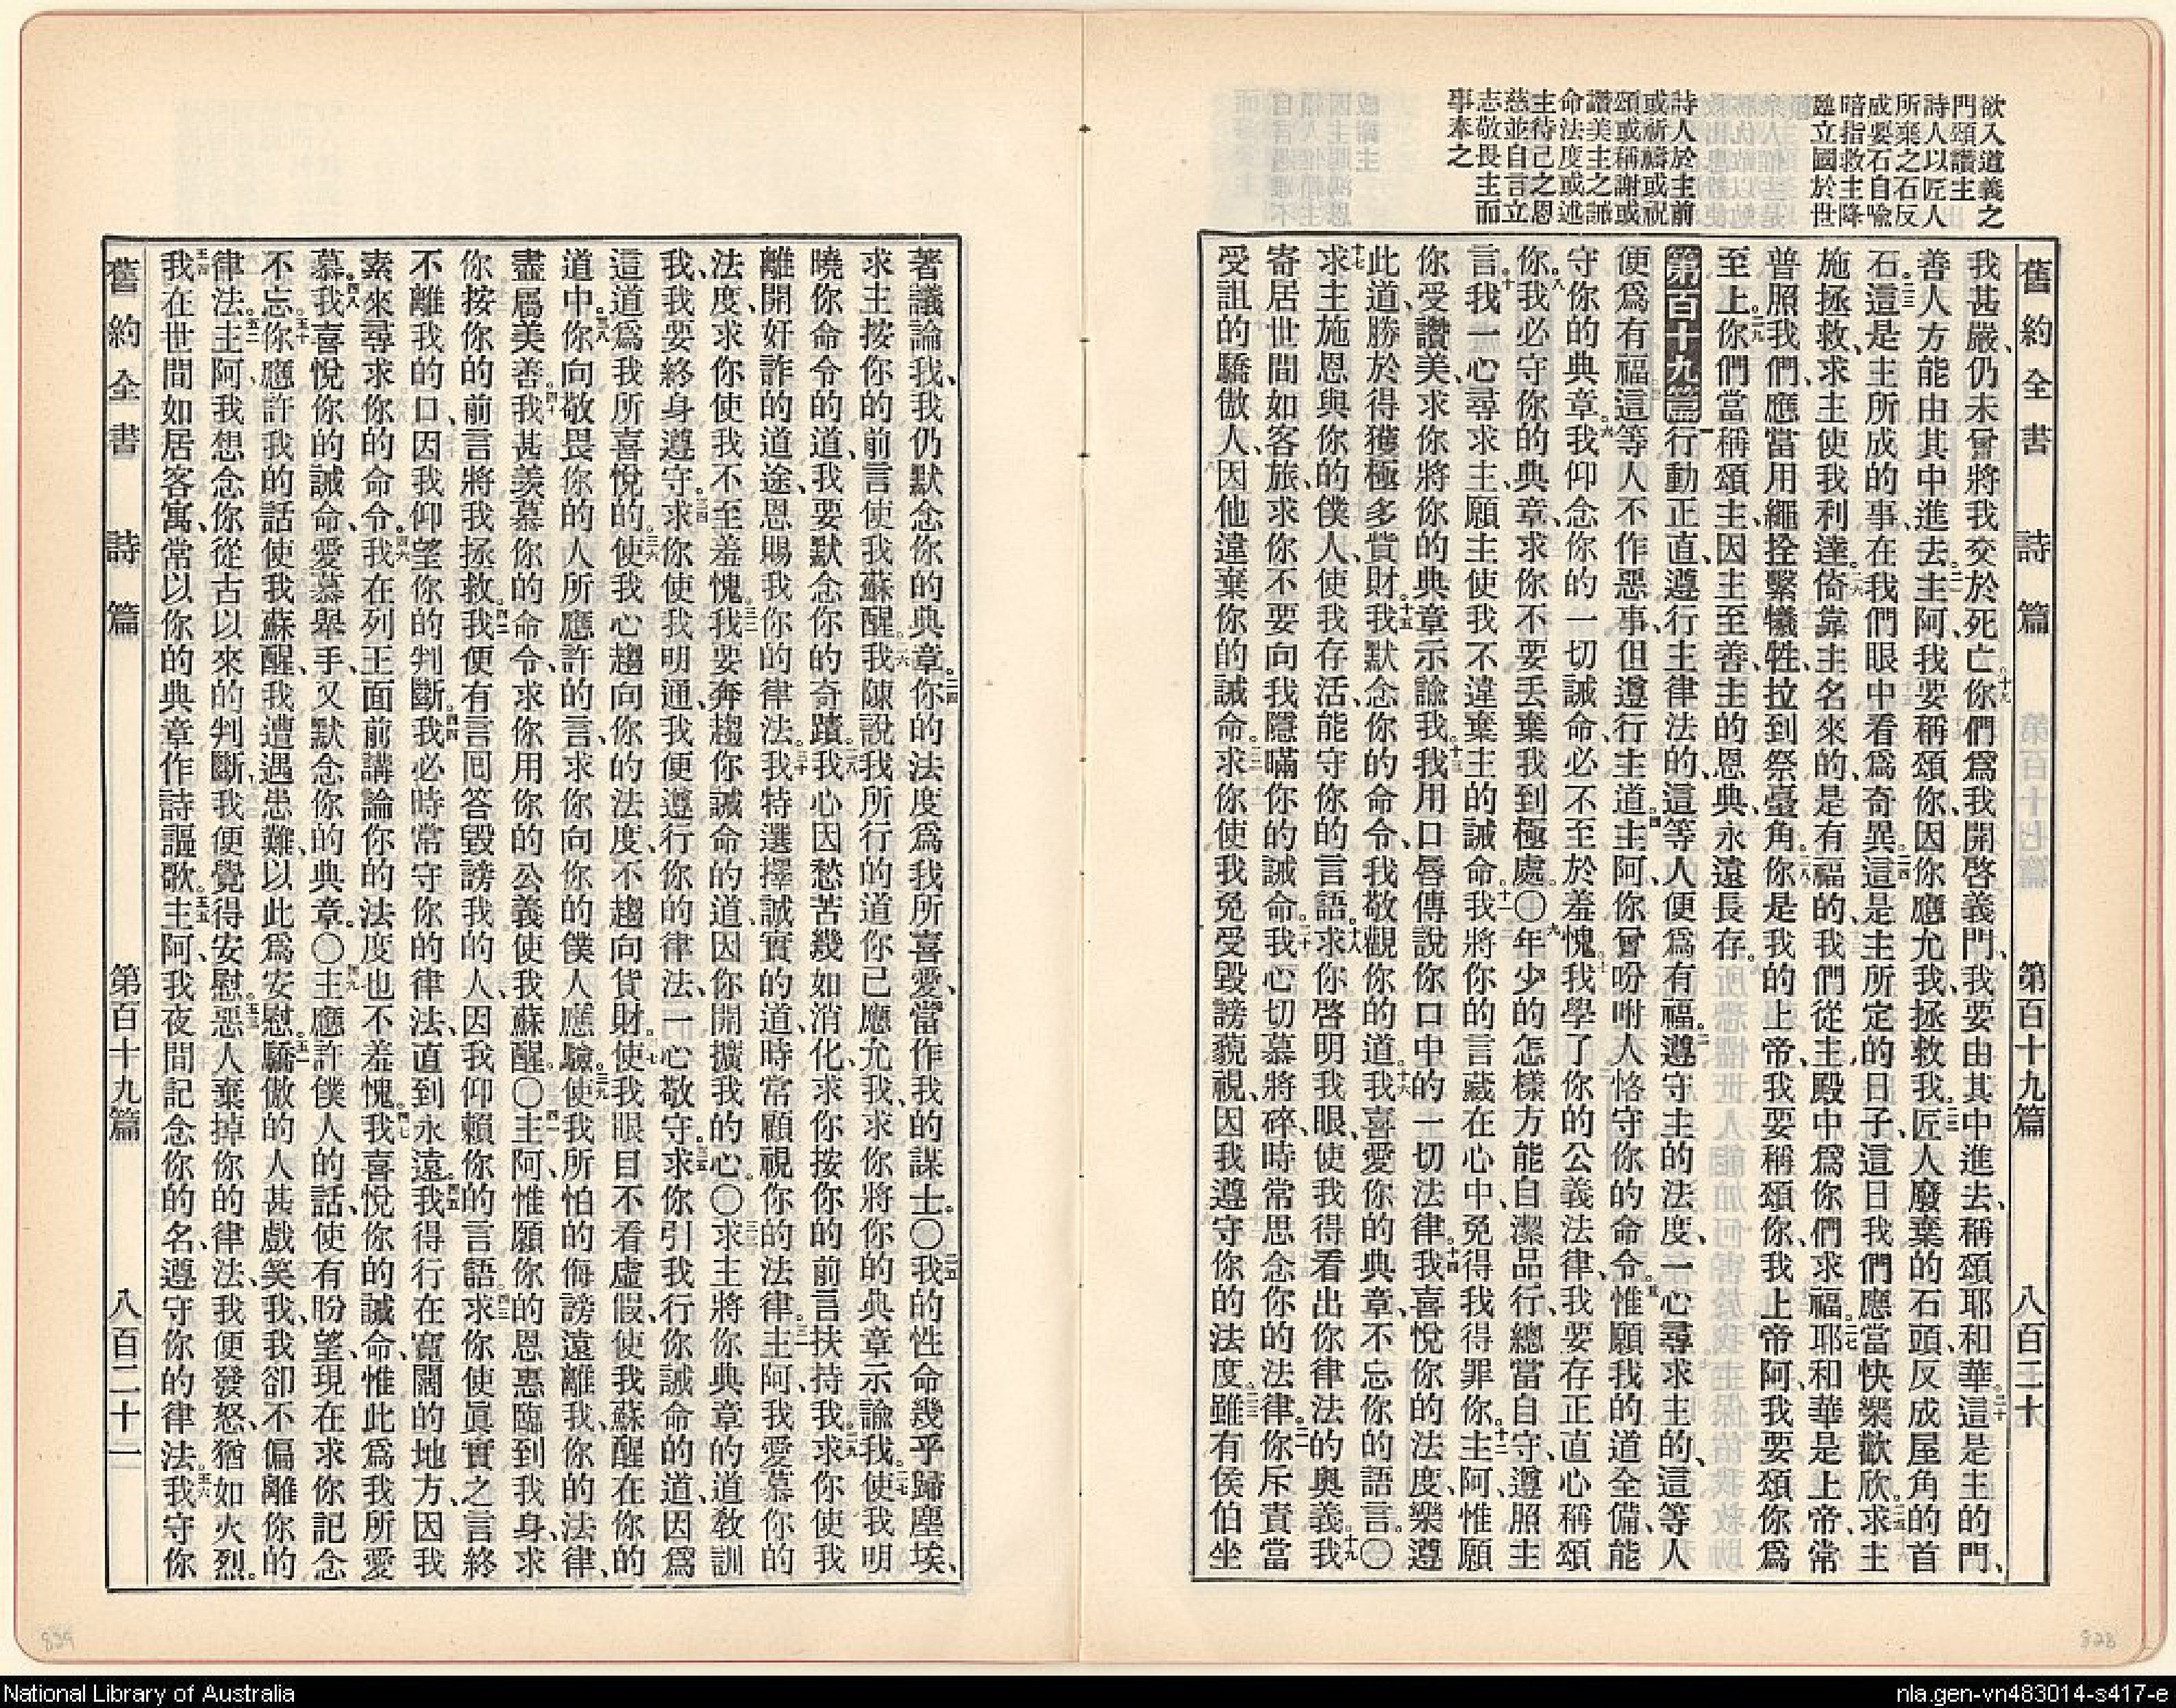 欲入道義之
門頌讚主
詩人以匠人
所棄之石反
成要石自喩
暗指救主降
臨立國於世
詩人於主前
或祈禱或祝
頌或稱謝或
讚美主之誡
命法度或述
主待己之恩
慈並自言立
志敬畏主而
事奉之
舊約全書 詩篇 第百十九篇 八百二十
我甚嚴、仍未曾將我交於死亡。十九你們爲我開啓義門、我要由其中進去、稱頌耶和華。二十這是主的門、
善人方能由其中進去。二一主阿、我要稱頌你、因你應允我、拯救我。二二匠人廢棄的石頭、反成屋角的首
石。二三這是主所成的事、在我們眼中看爲奇異。二四這是主所定的日子、這日我們應當快樂歡欣。二五求主
施拯救、求主使我利達。二六倚靠主名來的、是有福的、我們從主殿中爲你們求福。二七耶和華是上帝、常
普照我們、應當用繩拴繫犧牲、拉到祭臺角。二八你是我的上帝、我要稱頌你、我上帝阿、我要頌你爲
至上。二九你們當稱頌主、因主至善、主的恩典、永遠長存。
第百十九篇 一行動正直、遵行主律法的、這等人便爲有福。二遵守主的法度、一心尋求主的、這等人
便爲有福。三這等人不作惡事、但遵行主道。四主阿、你曾吩咐人恪守你的命令。五惟願我的道全備、能
守你的典章。六我仰念你的一切誡命、必不至於羞愧。七我學了你的公義法律、我要存正直心稱頌
你。八我必守你的典章、求你不要丟棄我到極處。〇九年少的怎樣方能自潔品行、總當自守、遵照主
言。十我一心尋求主、願主使我不違棄主的誡命。十一我將你的言藏在心中、免得我得罪你。十二主阿、惟願
你受讚美、求你將你的典章示諭我。十三我用口唇傳說你口中的一切法律。十四我喜悅你的法度、樂遵
此道、勝於得獲極多貲財。十五我默念你的命令、我敬觀你的道。十六我喜愛你的典章、不忘你的語言。〇
十七求主施恩與你的僕人、使我存活、能守你的言語。十八求你啓明我眼、使我得看出你律法的奧義。十九我
寄居世間如客旅、求你不要向我隱瞞你的誡命。二十我心切慕將碎、時常思念你的法律。二一你斥責當
受詛的驕傲人、因他違棄你的誡命。二二求你使我免受毀謗藐視、因我遵守你的法度。二三雖有侯伯坐
著議論我、我仍默念你的典章。二四你的法度爲我所喜愛、當作我的謀士。〇二五我的性命幾乎歸塵埃、
求主按你的前言使我蘇醒。二六我陳說我所行的道、你已應允我、求你將你的典章示諭我。二七使我明
曉你命令的道、我要默念你的奇蹟。二八我心因愁苦幾如消化、求你按你的前言扶持我。二九求你使我
離開奸詐的道途、恩賜我你的律法。三十我特選擇誠實的道、時常顧視你的法律。三一主阿、我愛慕你的
法度、求你使我不至羞愧。三二我要奔趨你誡命的道、因你開擴我的心。〇三三求主將你典章的道敎訓
我、我要終身遵守。三四求你使我明通、我便遵行你的律法、一心敬守。三五求你引我行你誡命的道、因爲
這道爲我所喜悅的。三六使我心趨向你的法度、不趨向貨財。三七使我眼目不看虛假、使我蘇醒在你的
道中。三八你向敬畏你的人所應許的言、求你向你的僕人應驗。三九使我所怕的侮謗遠離我、你的法律、
盡屬美善。四十我甚羨慕你的命令、求你用你的公義使我蘇醒。〇四一主阿、惟願你的恩惠臨到我身、求
你按你的前言將我拯救。四二我便有言回答毀謗我的人、因我仰賴你的言語。四三求你使眞實之言終
不離我的口、因我仰望你的判斷。四四我必時常守你的律法、直到永遠。四五我得行在寬闊的地方、因我
素來尋求你的命令。四六我在列王面前講論你的法度也不羞愧。四七我喜悅你的誡命、惟此爲我所愛
慕。四八我喜悅你的誡命、愛慕舉手、又默念你的典章。〇四九主應許僕人的話、使有盼望、現在求你記念
不忘。五十你應許我的話使我蘇醒、我遭遇患難、以此爲安慰。五一驕傲的人甚戲笑我、我卻不偏離你的
律法。五二主阿、我想念你從古以來的判斷、我便覺得安慰。五三惡人棄掉你的律法、我便發怒、猶如火烈。
五四我在世間如居客寓、常以你的典章作詩謳歌。五五主阿、我夜間記念你的名、遵守你的律法。五六我守你
舊約全書 詩篇 第百十九篇 八百二十一
829
828
National Library of Australia
nla.gen-vn483014-s417-e